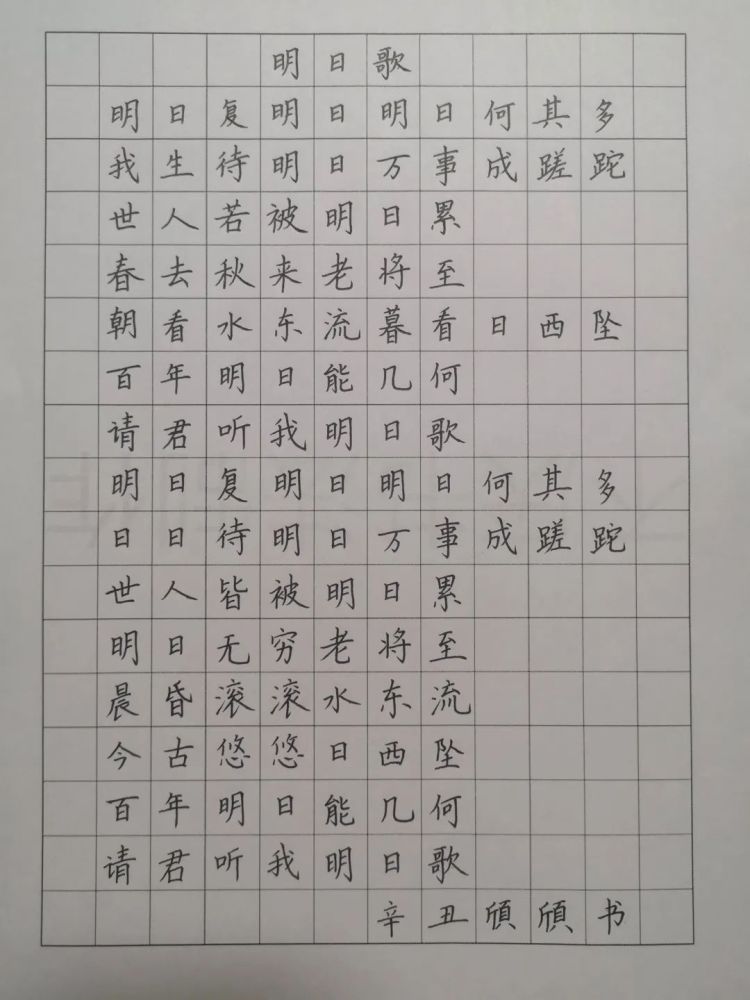 明日歌
明日复明日明日何其多
我生待明日万事成蹉跎
世人若被明日累
春去秋来老将至
朝看水东流暮看日西坠
百年明日能几何
请君听我明日歌
明日复明日明日何其多
日日待明日万事成蹉跎
世人皆被明日累
明日无穷老将至
晨昏滚滚水东流
今古悠悠日西坠
百年明日能几何
请君听我明日歌
辛丑頎頎书